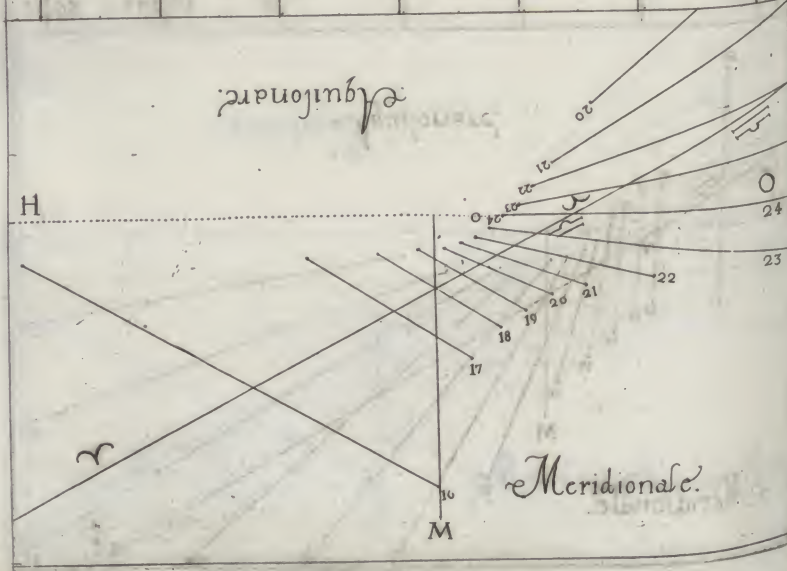 Aquilonare.
20
21
22
23
24
H
O
♈
♎
O
24
23
22
21
20
19
18
17
♈
16
M
Meridionale.